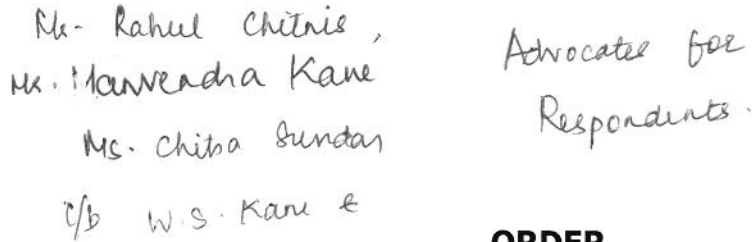 Mr. Rahul Chitnis,
Mr. Manvendra Kane
Ms. Chitra Sundar
i/b W.S. Kane &
Advocates for
Respondents.
ORDER